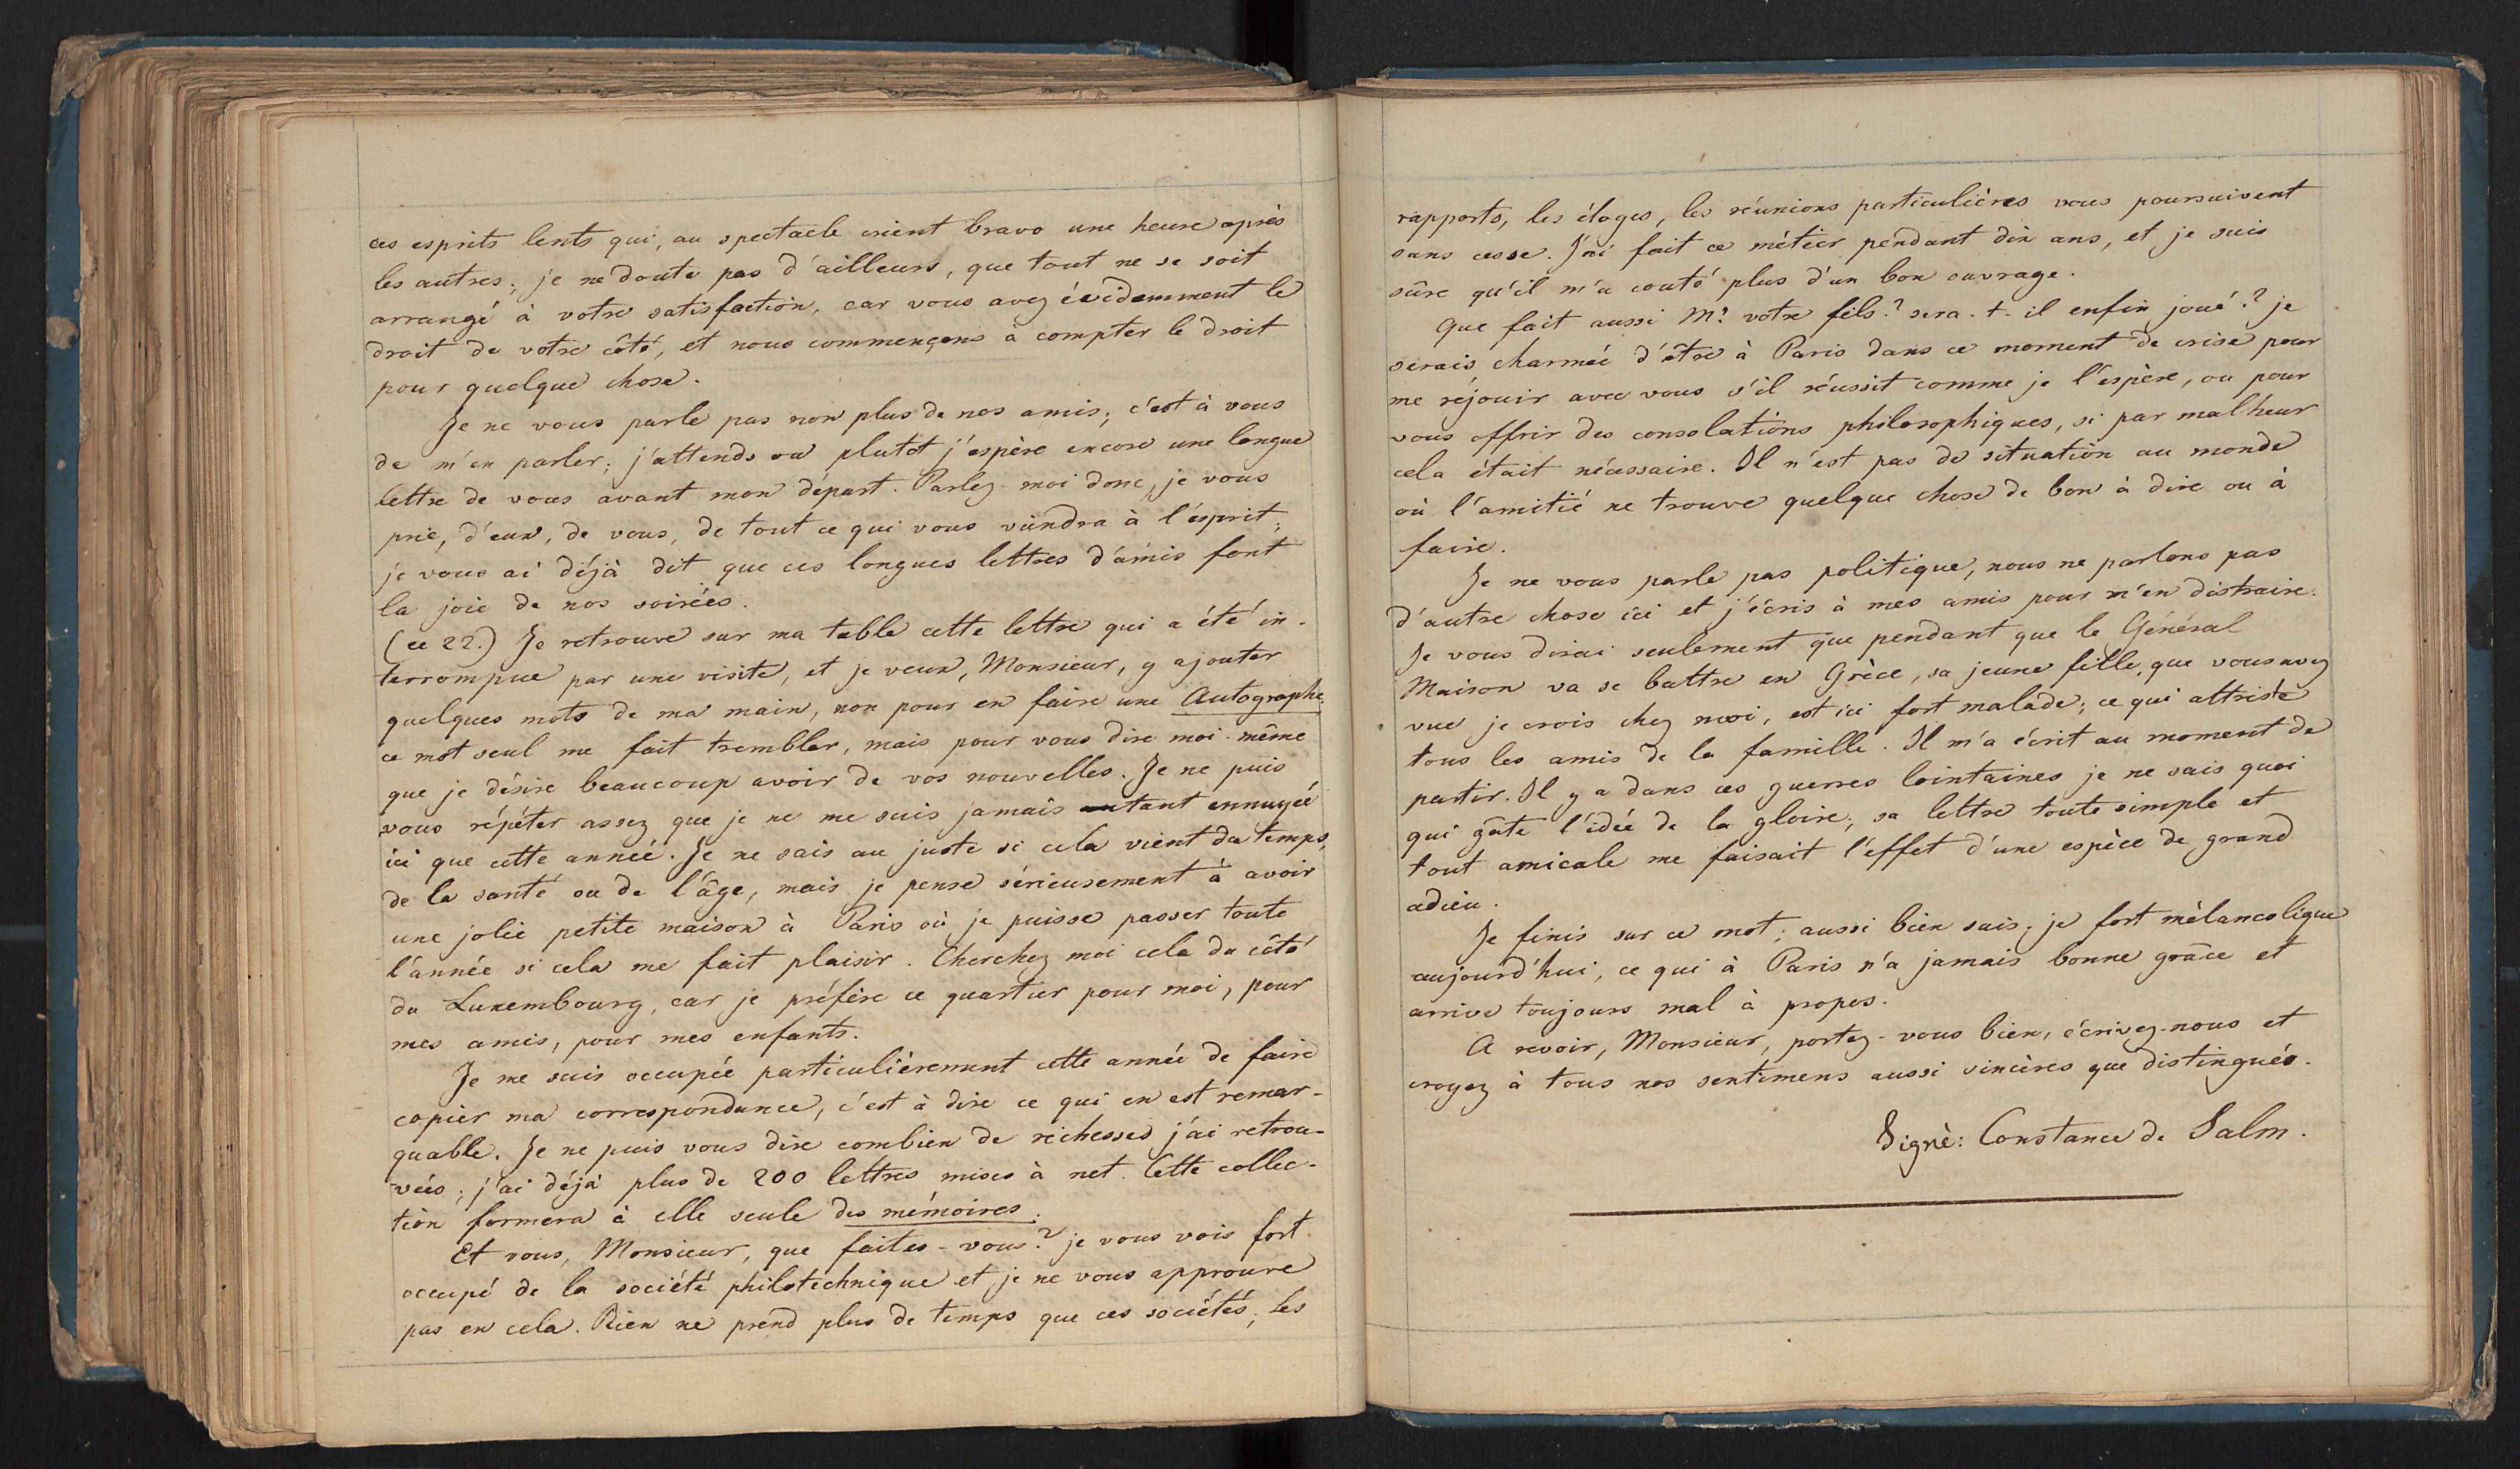 ces esprits lents qui, au spectacle crient bravo une heure après
les autres; je ne doute pas d'ailleurs, que tout ne se soit
arrangé à votre satisfaction, car vous avez évidemment le
droit de votre côté, et nous commençons à compter le droit
pour quelque chose.
Je ne vous parle pas non plus de nos amis; c'est à vous
de m'en parler; j'attends ou plutôt j'espère encore une longue
lettre de vous avant mon départ. Parlez-moi donc, je vous
prie, d'eux, de vous, de tout ce qui vous viendra à l'esprit;
je vous ai déjà dit que ces longues lettres d'amis font
la joie de nos soirées.
(ce 22.) Je retrouve sur ma table cette lettre qui a été in-
terrompue par une visite, et je veux, Monsieur, y ajouter
quelques mots de ma main, non pour en faire une Autographe;
ce mot seul me fait trembler, mais pour vous dire moi-même
que je désire beaucoup avoir de vos nouvelles. Je ne puis
vous répéter assez que je ne me suis jamais autant ennuyée
ici que cette année. Je ne sais au juste si cela vient du temps,
de la santé ou de l'âge, mais je pense sérieusement à avoir
une jolie petite maison à Paris où je puisse passer toute
l'année si cela me fait plaisir. Cherchez moi cela du côté
du Luxembourg, car je préfère ce quartier pour moi, pour
mes amis, pour mes enfants.
Je me suis occupée particulièrement cette année de faire
copier ma correspondance, c'est à dire ce qui en est remar-
quable. Je ne puis vous dire combien de richesses j'ai retrou-
vées; j'ai déjà plus de 200 lettres mises à net. Cette collec-
tion formera à elle seule des mémoires.
Et vous, Monsieur, que faites-vous? je vous vois fort
occupé de la société philotechnique et je ne vous approuve
pas en cela. Rien ne prend plus de temps que ces sociétés; les
rapports, les éloges, les réunions particulières vous poursuivent
sans cesse. J'ai fait ce métier pendant dix ans, et je suis
sûre qu'il m'a couté plus d'un bon ouvrage.
Que fait aussi Mr. votre fils? sera-t-il enfin joué? je
serais charmée d'être à Paris dans ce moment de crise pour
me réjouir avec vous s'il réussit comme je l'espère, ou pour
vous offrir des consolations philosophiques, si par malheur
cela était nécessaire. Il n'est pas de situation au monde
où l'amitié ne trouve quelque chose de bon à dire ou à
faire.
Je ne vous parle pas politique, nous ne parlons pas
d'autre chose ici et j'écris à mes amis pour m'en distraire.
Je vous dirai seulement que pendant que le Général
Maison va se battre en Grèce, sa jeune fille, que vous avez
vue je crois chez moi, est ici fort malade; ce qui attriste
tous les amis de la famille. Il m'a écrit au moment de
partir. Il y a dans ces guerres lointaines je ne sais quoi
qui gâte l'idée de la gloire; sa lettre toute simple et
tout amicale me faisait l'effet d'une espèce de grand
adieu.
Je finis sur ce mot; aussi bien suis-je fort mélancolique
aujourd'hui, ce qui à Paris n'a jamais bonne grâce et
arrive toujours mal à propos.
A revoir, Monsieur, portez-vous bien, écrivez-nous et
croyez à tous nos sentimens aussi sincères que distingués.
Signé: Constance de Salm.